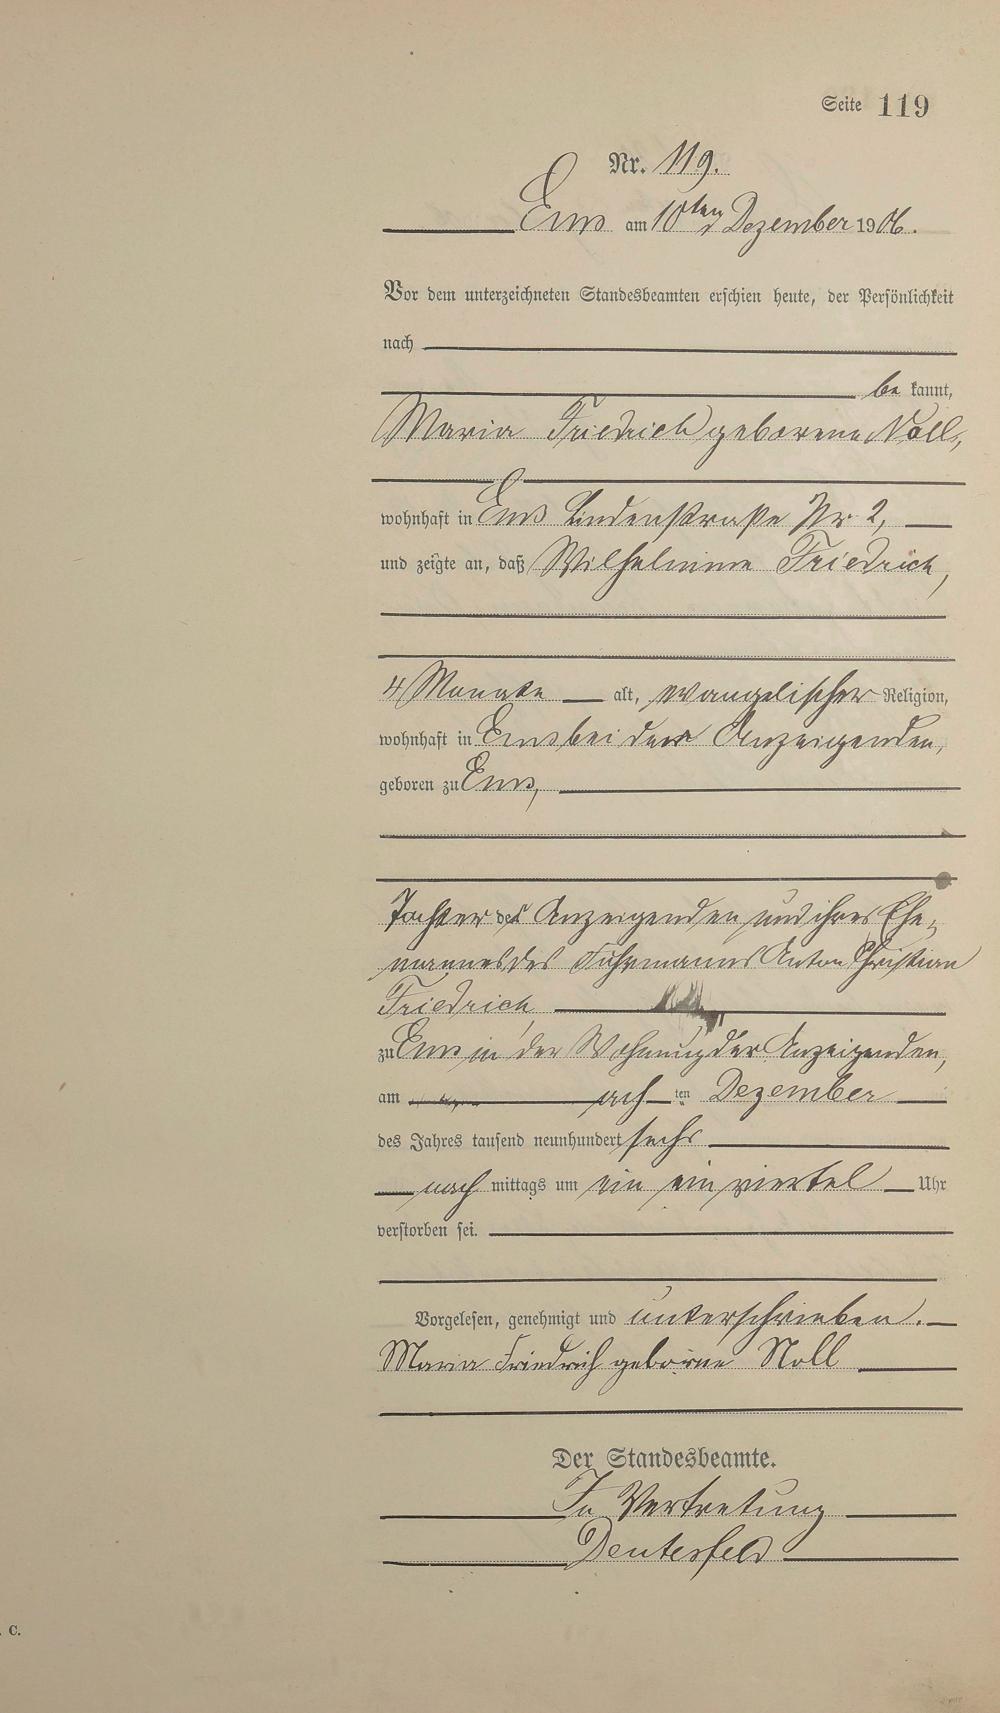 Seite 119
Nr. 119.
Ems am 10ten Dezember 1906.
Vor dem unterzeichneten Standesbeamten erschien heute, der Persönlichkeit
nach
be kannt,
Maria Friedrich geborene Noll,
wohnhaft in Ems Lindenstraße Nr. 2,
und zeigte an, daß Wilhelmine Friedrich,
4 Monate alt, evangelischer Religion,
wohnhaft in Ems bei der Anzeigenden,
geboren zu Ems,
Tochter der Anzeigenden und ihres Ehe-
mannes des Fuhrmanns Anton Christian
Friedrich
zu Ems in der Wohnung der Anzeigenden,
am ach ten Dezember
des Jahres tausend neunhundert sechs
nach mittags um ein ein viertel Uhr
verstorben sei.
Vorgelesen, genehmigt und unterschrieben.
Maria Friedrich geborne Noll
Der Standesbeamte.
In Vertretung
Deutesfeld
. C.